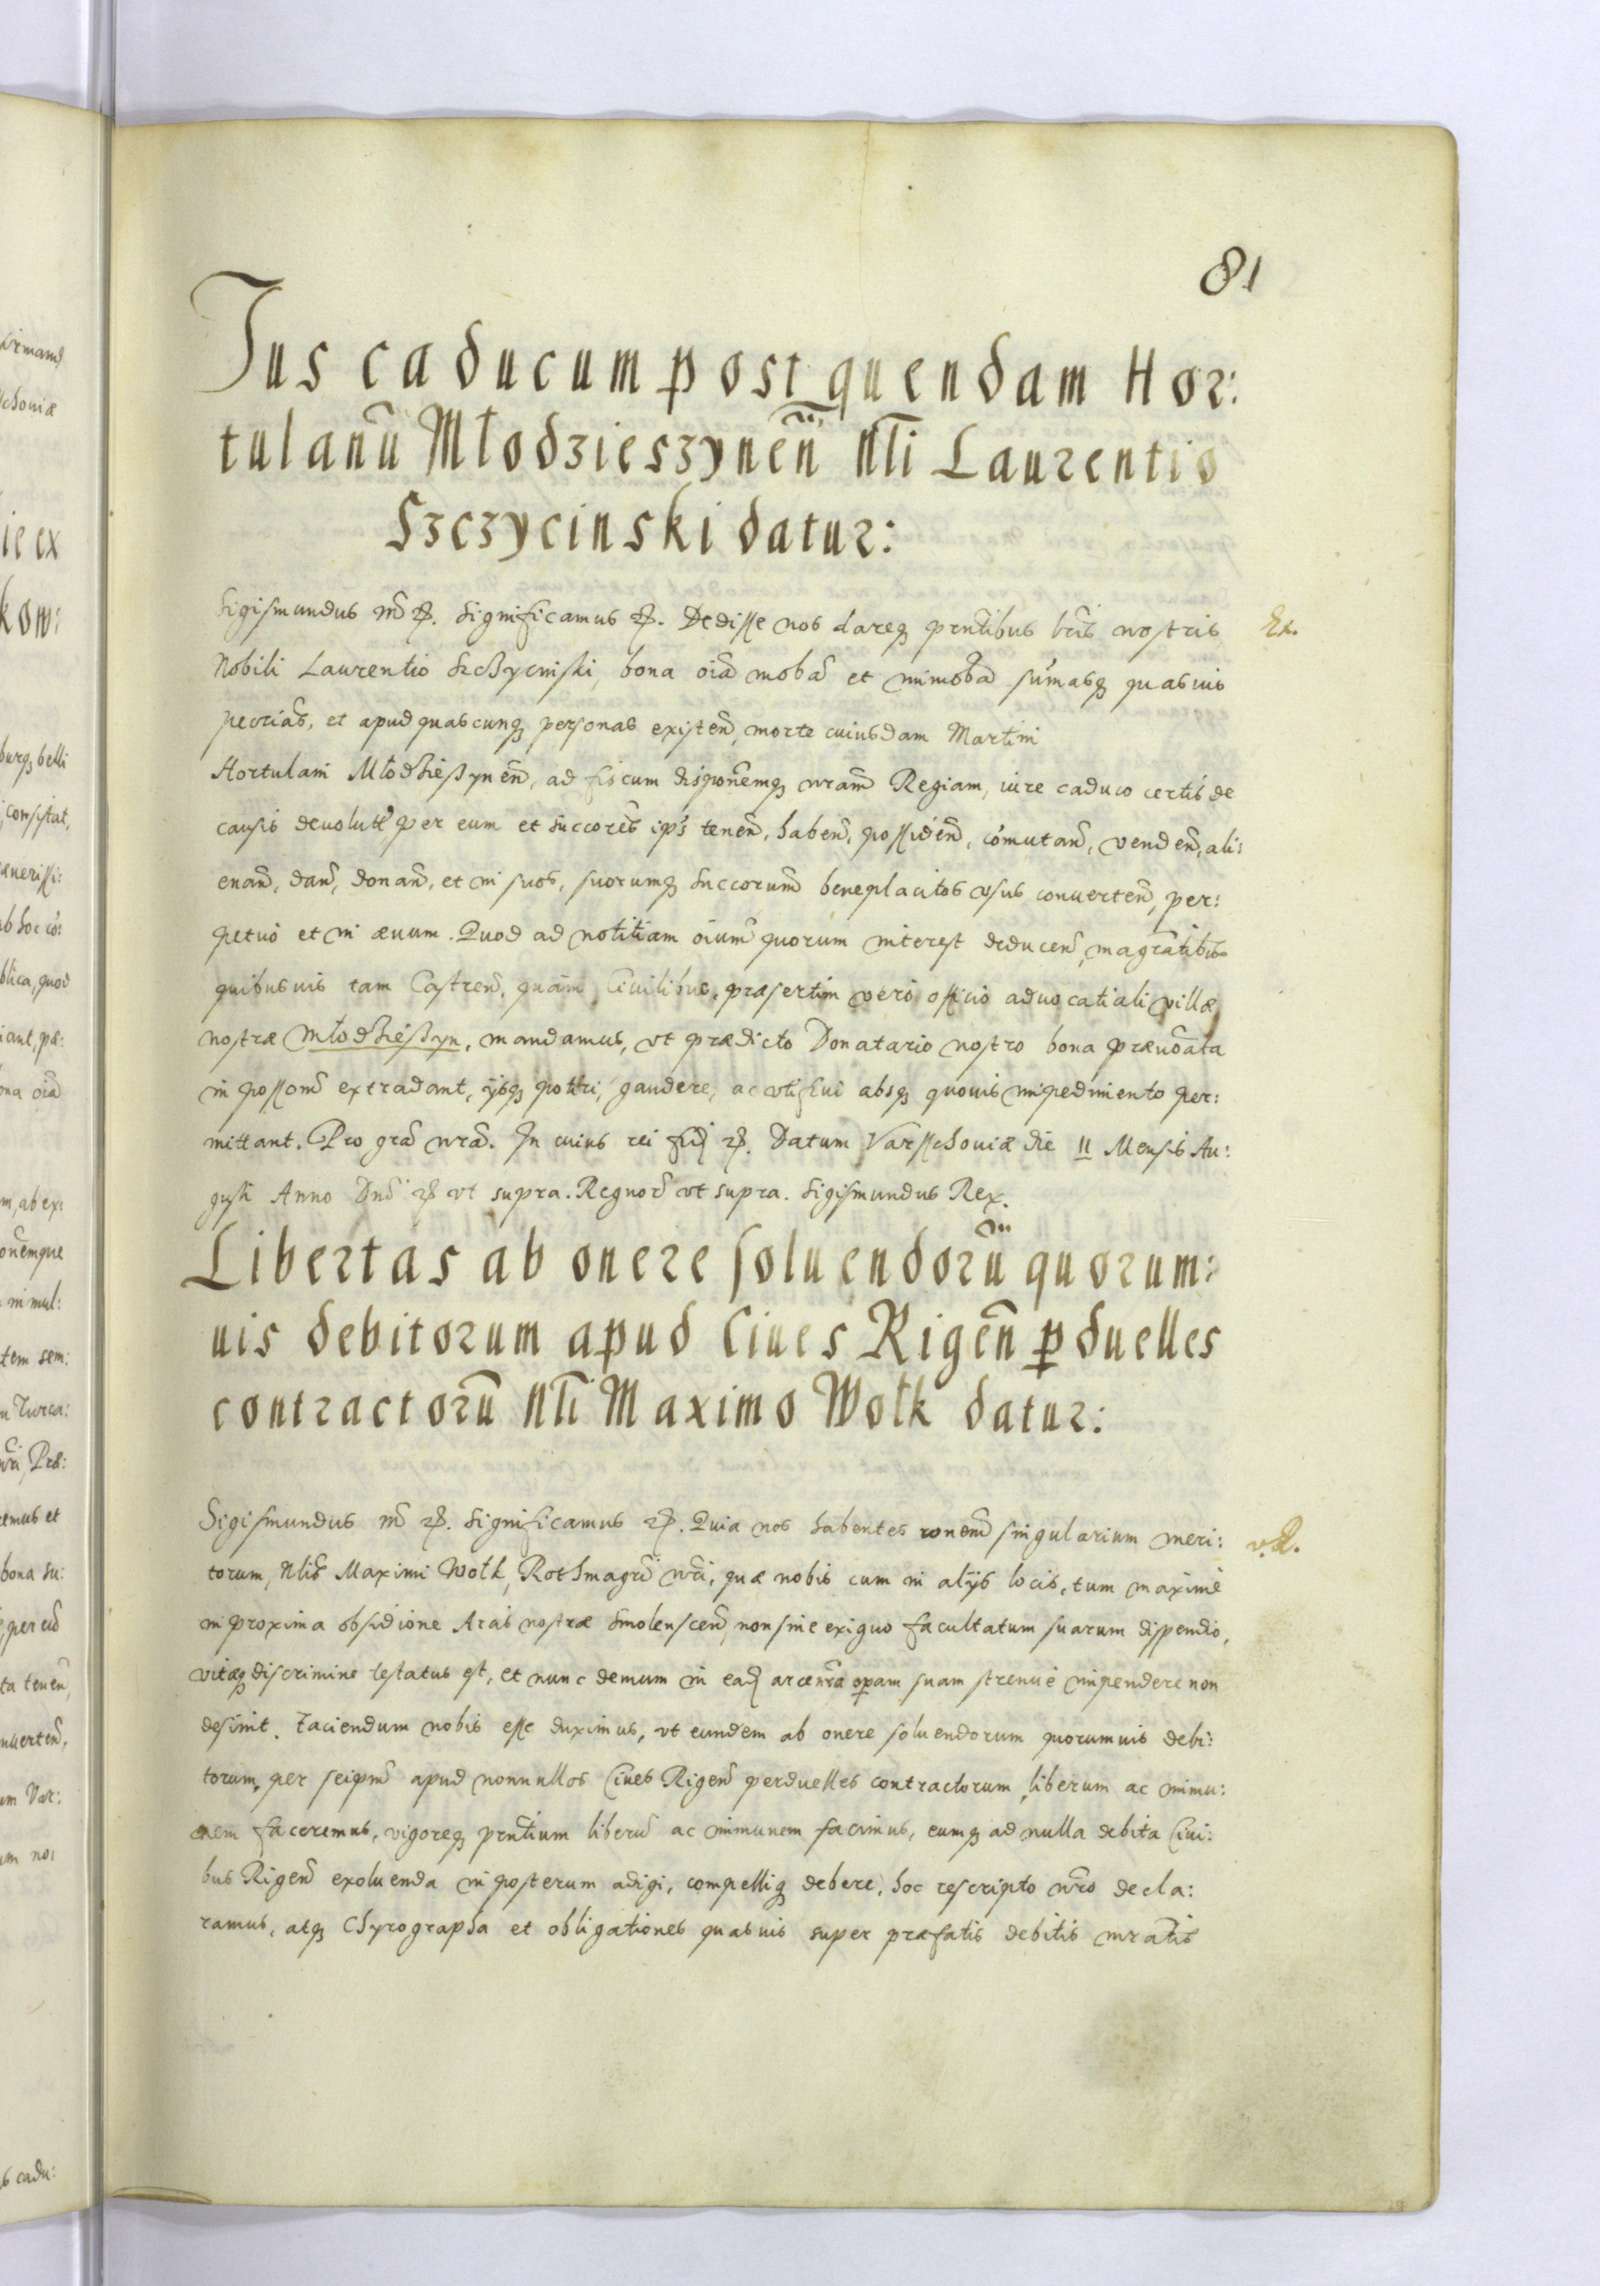 81
Jus caducum post quendam Hor:
tulanũ Młodzieszynen̄ Nli Laurentio
Szczycinski datur:
Sigismundus m̃ ꝛc̃. Significamus ꝛc̃. Dedisse nos dareq̃ prntibus lr̃is nostris
Ex.
Nobili Laurentio Szczycinski, bona oĩa mobã et immobã sum̃asq̃ quasuis
pecriãs, et apud quascunq̃ personas existeñ, morte cuiusdam Martini
Hortulani Młodzieszyneñ, ad fiscum disponem̃q̃ nrãm Regiam, iure caduco certis de
causis deuoluta per eum et succores̃ ip̃s teneñ, habeñ, possideñ, com̃utañ, vendeñ, ali:
enañ, dañ, donañ, et in suos, suorumq̃ succorum̃ beneplacitos vsus conuerteñ, per:
petuó et in æuum. Quod ad notitiam oĩum quorum interest deduceñ, magratibus
quibusuis tam Castreñ, quàm Ciuilibus, præsertim veró officio aduocatiali villæ
nostræ Młodzieszyn, mandamus, vt prædicto Donatario nostro bona prænoãta
in possoñm extradant, ijsq̃ potiri, gaudere, ac vti frui absq̃ quouis impedimento per:
mittant. Pro grã nrã. In cuius rei fid ꝛc̃. Datum Varsschouiæ die 11 Mensis Au:
gusti Anno Dnĩ ꝛc̃ vt supra. Regnor̃ vt supra. Sigismundus Rex.
Libertas ab onere soluendorũ quorum:
uis debitorum apud Ciues Rigeñ ꝑduelles
contractorũ Nli Maximo Wołk datur:
Sigismundus m̃ ꝛc̃. Significamus ꝛc̃. Quia nos habentes roneñ singularium meri:
torum, Nlis Maximi Wołk, Rothmagri nr̃i, quæ nobis cum in alijs locis, tum maximè
in proxima obsidione Arcis nostræ Smolensceñ, non sine exiguo facultatum suarum dispendio,
vitæq̃ discrimine testatus est, et nunc demum in ead arce nrã oꝑam suam strenuè impendere non
desinit. Faciendum nobis esse duximus, vt eundem ab onere soluendorum quorumuis debi:
torum, per seipm̃ apud nonnullos Ciues Rigeñ perduelles contractorum, liberum ac immu:
nem faceremus, vigoreq̃ prntium liberũ ac immunem facimus, eumq̃ ad nulla debita Ciui:
bus Rigeñ exoluenda in posterum adigi, compelliq̃ debere, hoc rescripto nr̃o decla:
ramus, atq̃ Chyrographa et obligationes quasuis super præfatis debitis